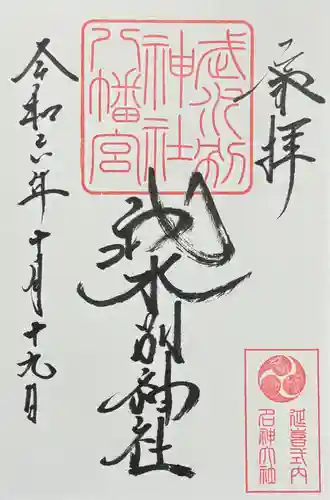 奉拝
武水別
神社
八幡宮
武水別神社
令和六年十月十九日
延喜式内
名神大社